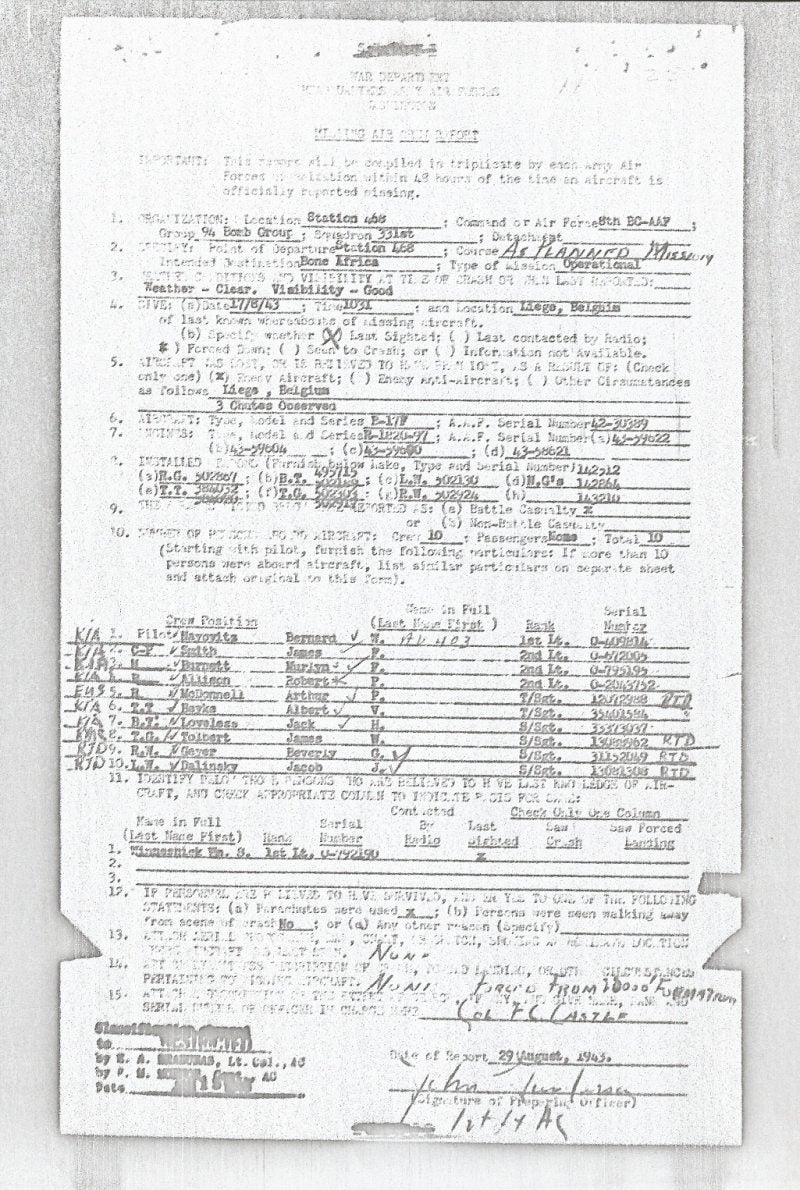 WAR DEPARTMENT
HEADQUARTERS ARMY AIR FORCES
WASHINGTON
MISSING AIR CREW REPORT
IMPORTANT: This report will be compiled in triplicate by each Army Air
Forces organization within 48 hours of the time an aircraft is
officially reported missing.
1. ORGANIZATION: Location Station 468 ; Command or Air Force 8th BC-AAF ;
Group 94 Bomb Group ; Squadron 331st ; Detachment
2. SPECIFY: Point of Departure Station 468 ; Course As PLANNED MISSION
Intended Destination Bone Africa ; Type of Mission Operational
3. WEATHER CONDITIONS AND VISIBILITY AT TIME OF CRASH OR WHEN LAST REPORTED:
Weather - Clear. Visibility - Good
4. GIVE: (a) Date 17/8/43 ; Time 1031 ; and Location Liege, Belgium
of last known whereabouts of missing aircraft.
(b) Specify weather (X) Last Sighted; ( ) Last contacted by Radio;
) Forced Down; ( ) Seen to Crash; or ( ) Information not Available.
5. AIRCRAFT WAS LOST, OR IS BELIEVED TO HAVE BEEN LOST, AS A RESULT OF: (Check
only one) (x) Enemy Aircraft; ( ) Enemy Anti-Aircraft; ( ) Other Circumstances
as follows Liege , Belgium
3 Chutes Observed
6. AIRCRAFT: Type, Model and Series B-17F ; A.A.F. Serial Number 42-30389
7. ENGINES: Type, Model and Series R-1820-97 ; A.A.F. Serial Number (a) 43-59622
(b) 43-59604 ; (c) 43-59600 ; (d) 43-58621
8. INSTALLED WEAPONS (Furnish below Make, Type and Serial Number) 142512
(a) R.G. 502867 ; (b) B.T. 495715 ; (c) L.W. 502130 ; (d) N.G's 142864
(e) T.T. 384032 ; (f) T.G. 502303 ; (g) R.W. 502924 (h) 143210
9. THE REPORTED AS: (a) Battle Casualty x
or (b) Non-Battle Casualty
10. NUMBER OF PERSONS ABOARD AIRCRAFT: Crew 10 ; Passengers None ; Total 10
(Starting with pilot, furnish the following particulars: If more than 10
persons were aboard aircraft, list similar particulars on separate sheet
and attach original to this form).
Crew Position Name in Full (Last Name First) Rank Serial Number
KIA 1. Pilot Nayovitz Bernard W. 1st Lt. O-409814
KIA 2. C-P Smith James F. 2nd Lt. O-672005
KIA 3. N Burnett Murlyn F. 2nd Lt. O-795195
KIA 4. B Allison Robert P. 2nd Lt. O-2043752
EUS 5. R McDonnell Arthur P. T/Sgt. 12072988 RTD
KIA 6. T.T Hayks Albert V. T/Sgt. 35401584
KIA 7. B.T. Loveless Jack H. S/Sgt. 35373037
EUS 8. T.G. Tolbert James W. S/Sgt. 13088962 RTD
RTD 9. R.W. Geyer Beverly G. S/Sgt. 31152049 RTD
RTD 10. L.W. Dalinsky Jacob J. S/Sgt. 13081308 RTD
11. IDENTIFY BELOW THOSE PERSONS WHO ARE BELIEVED TO HAVE LAST KNOWLEDGE OF AIR-
CRAFT, AND CHECK APPROPRIATE COLUMN TO INDICATE BASIS FOR SAME:
Contacted Check Only One Column
Name in Full Serial By Last Saw Saw Forced
(Last Name First) Rank Number Radio Sighted Crash Landing
1. Winneshick Wm. S. 1st Lt. O-792190 x
2.
3.
12. IF PERSONNEL ARE BELIEVED TO HAVE SURVIVED, ANSWER YES TO ONE OF THE FOLLOWING
STATEMENTS: (a) Parachutes were used x ; (b) Persons were seen walking away
from scene of crash No ; or (c) Any other reason (Specify)
13. ATTACH AERIAL PHOTOGRAPH, MAP, CHART, OR SKETCH, SHOWING APPROXIMATE LOCATION
WHERE AIRCRAFT WAS LAST SEEN. NONE
14. PERTAINING TO MISSING AIRCRAFT. NONE FORCED FROM 20000 FORMATION
15. SERIAL NUMBER OF OFFICER IN CHARGE HERE Col FC CASTLE
Classification
to
by Lt. Col., AC
by AC
Date
Date of Report 29 August, 1943.
John
(Signature of Preparing Officer)
1st Lt AC